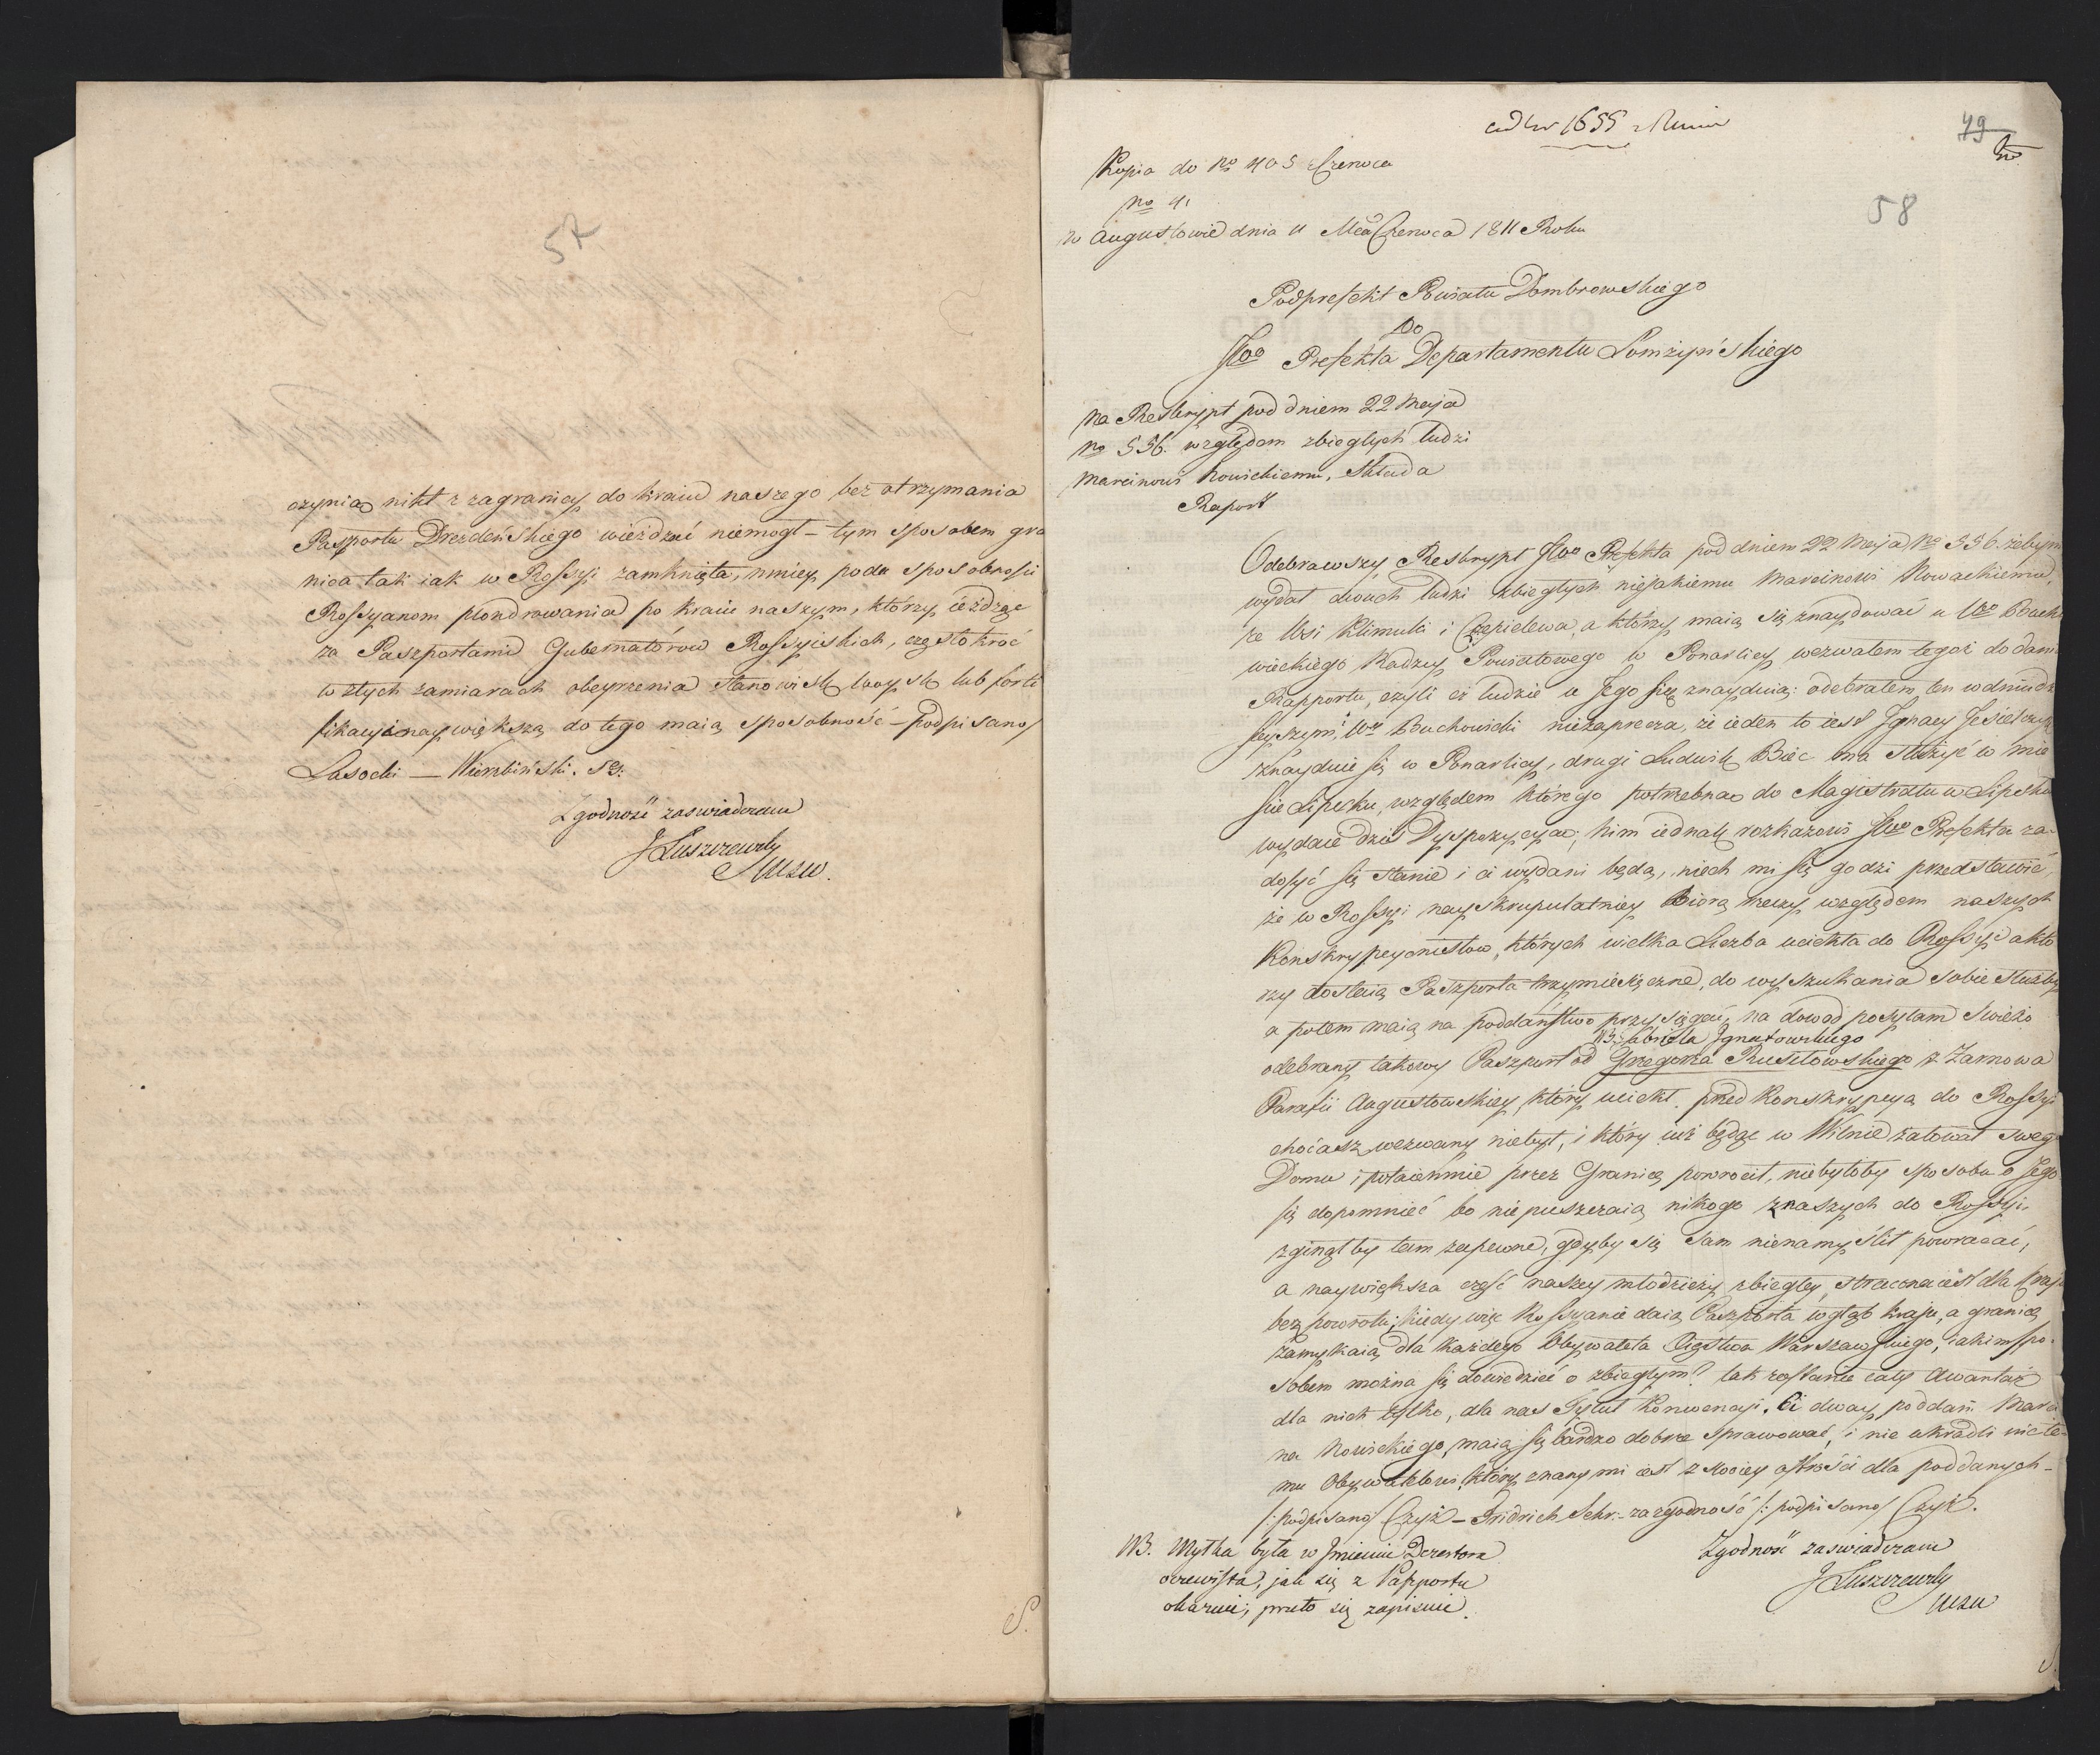 57
czynią nikt z zagranicy do kraiu naszego bez otrzymania
Paszportu Drezdeńskiego wieżdzać niemogł – tym sposobem gra
nica tak iak w Rossyi zamknięta, mniey poda sposobności
Rossyanom plondrowania po kraiu naszym, którzy ieżdżąc
za Paszportami Gubernatórow Rossyiskich, częstokroć
w złych zamiarach obeyrzenia stanowisk woysk lub forti
fikacyi naywiększą do tego maią sposobność – podpisano/
Lasocki — Wierzbiński. S.J.
Zgodność zaswiadczam
J Łuszczewsky
S.
ad Nr 1655
49
58
Kopia do No 405 Czerwca
No 41
w Augustowie dnia 11 Mca Czerwca 1811 Roku
Podprefekt Powiatu Dombrowskiego
Do
JWo Prefekta Departamentu Łomżyńskiego
Na Reskrypt pod dniem 22 Maja
No 556. względem zbiegłych ludzi
Marcinowi Nowickiemu, składa
Raport
Odebrawszy Reskrypt JWo Prefekta pod dniem 22 Maja No 556. żebym
wydał dwuch ludzi zbiegłych niejakiemu Marcinowi Nowackiemu,
ze Wsi Klimuki i Czepielewa, a którzy maią się znaydować u Wo Bucho
wieckiego Radzcy Powiatowego w Ponarlicy wezwałem tegoż do dania
Rapportu, czyli ci ludzie u Jego się znayduią: odebrałem ten w dniu dzi
sieyszym; Wny Buchowiecki niezaprecza, że ieden to iest Ignacy
znayduie się w Ponarlicy, drugi Ludwik Biec ma służyć w mie
ście Lipsku, względem którego potrzebną do Magistratu w Lipsku
wydaie dziś Dyspozycyą; nim iednak rozkazowi JWo Prefekta za-
dosyć się stanie i ci wydani będą, niech mi się godzi przedstawić,
że w Rossyi nayskrupulatniey biorą rzeczy względem naszych
Konskrypcyonistow, których wielka Liczba uciekła do Rossyi a któ
rzy dostaią Paszporta trzymiesięczne, do wyszukania sobie służby
a potem maią na poddaństwo przysięgać, na dowod posyłam świeżo
NB. Gabriela Ignatowskiego
odebrany takowy Paszport od Grzegorza Rusztowskiego z Zarnowa
Parafii Augustowskiey, który uciekł przed Konskrypcyą do Rossyi
chociasz wezwany niebył, i który iuż będąc w Wilnie żałował swego
Domu i potaiemnie przez Granicę powrocił, niebyłoby sposobu o Jego
się dopomnieć bo niepuszczaią nikogo z naszych do Rossyi,
zginął by tam zapewne, gdyby się sam nienamyślił powracać,
a naywiększa część naszey młodzieży zbiegłey, stracona iest dla Kraju
bez powrotu; kiedy więc Rossyanie daią Paszporta w głąb kraju, a granicę
zamykaią dla każdego Obywatela Xięstwa Warszawskiego, iakim spo-
sobem można się dowiedzieć o zbiegłym? tak zostanie cały Awantaż
dla nich tylko, dla nas Tytuł Konwencyi. Ci dway poddani Marci
na Nowickiego, maią się bardzo dobrze sprawować, i nie ukradli nic te-
mu Obywatelowi, który znany mi iest z swoiey ostrości dla poddanych –
/: podpisano/ Czyż – Fridrich Sekr: – za zgodność /: podpisano/ Czyż.
NB. Myłka była w Jmieniu Dezertora
oczewista, jak się z Paszportu
okazuie, przeto się zapisuie.
Zgodność zaswiadczam
J Łuszczewsky